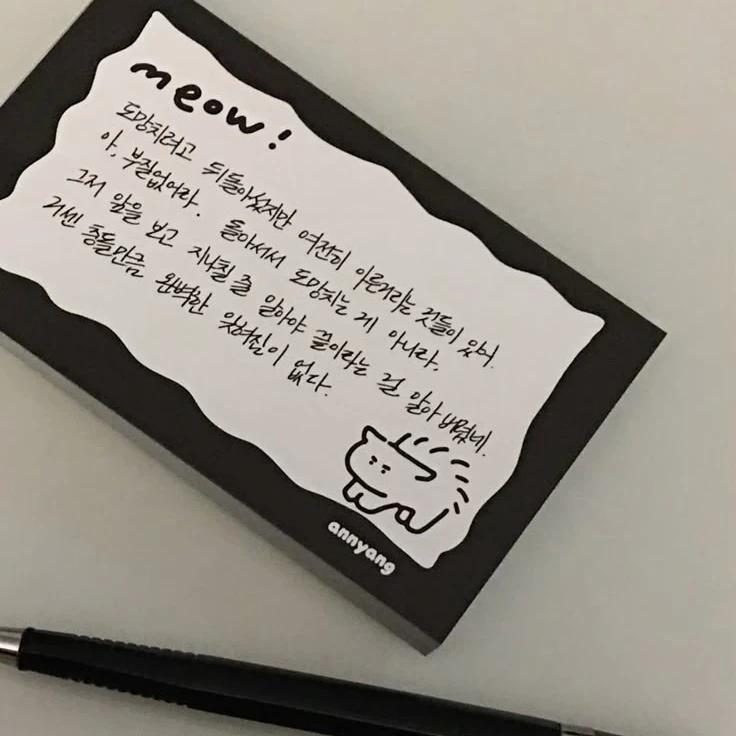 meow!
도망치려고 뒤돌아섰지만 여전히 아른거리는 것들이 있어.
아, 부질없어라. 돌아서서 도망치는 게 아니라,
그저 앞을 보고 지나칠 줄 알아야 끝이라는 걸 알아 버렸네.
거센 충돌만큼 완벽한 잊혀짐이 없다.
annyang